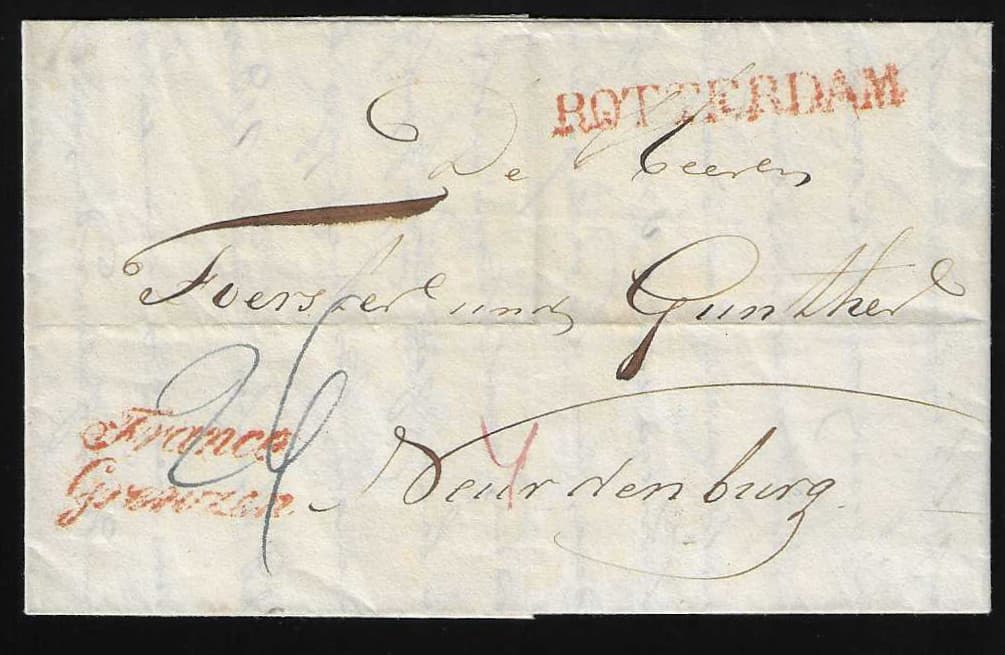 ROTTERDAM
De Heeren
Foerster und Gunther
Franco
Grenzen
24
4
Neurdenburg.